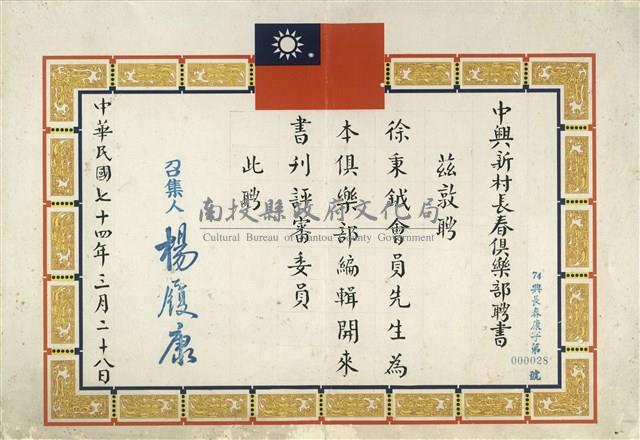 中興新村長春俱樂部聘書
74興長春康字第
000028
號
茲敦聘
徐秉鉞會員先生為
本俱樂部編輯開來
書刊評審委員
此聘
召集人 楊履康
中華民國七十四年三月二十八日
南投縣政府文化局
Cultural Bureau of Nantou County Government